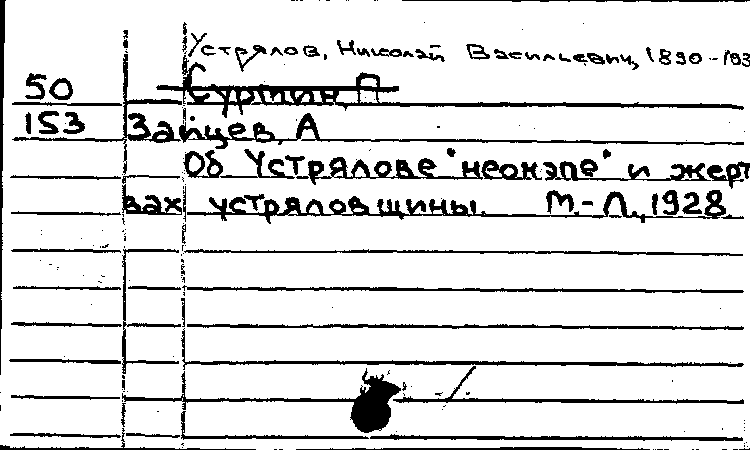 Устрялов, Николай Васильевич, 1890-193
50 Суртин, П
153 Зайцев, А
Об Устрялове "неонэпе" и жерт
вах устряловщины. М.-Л., 1928